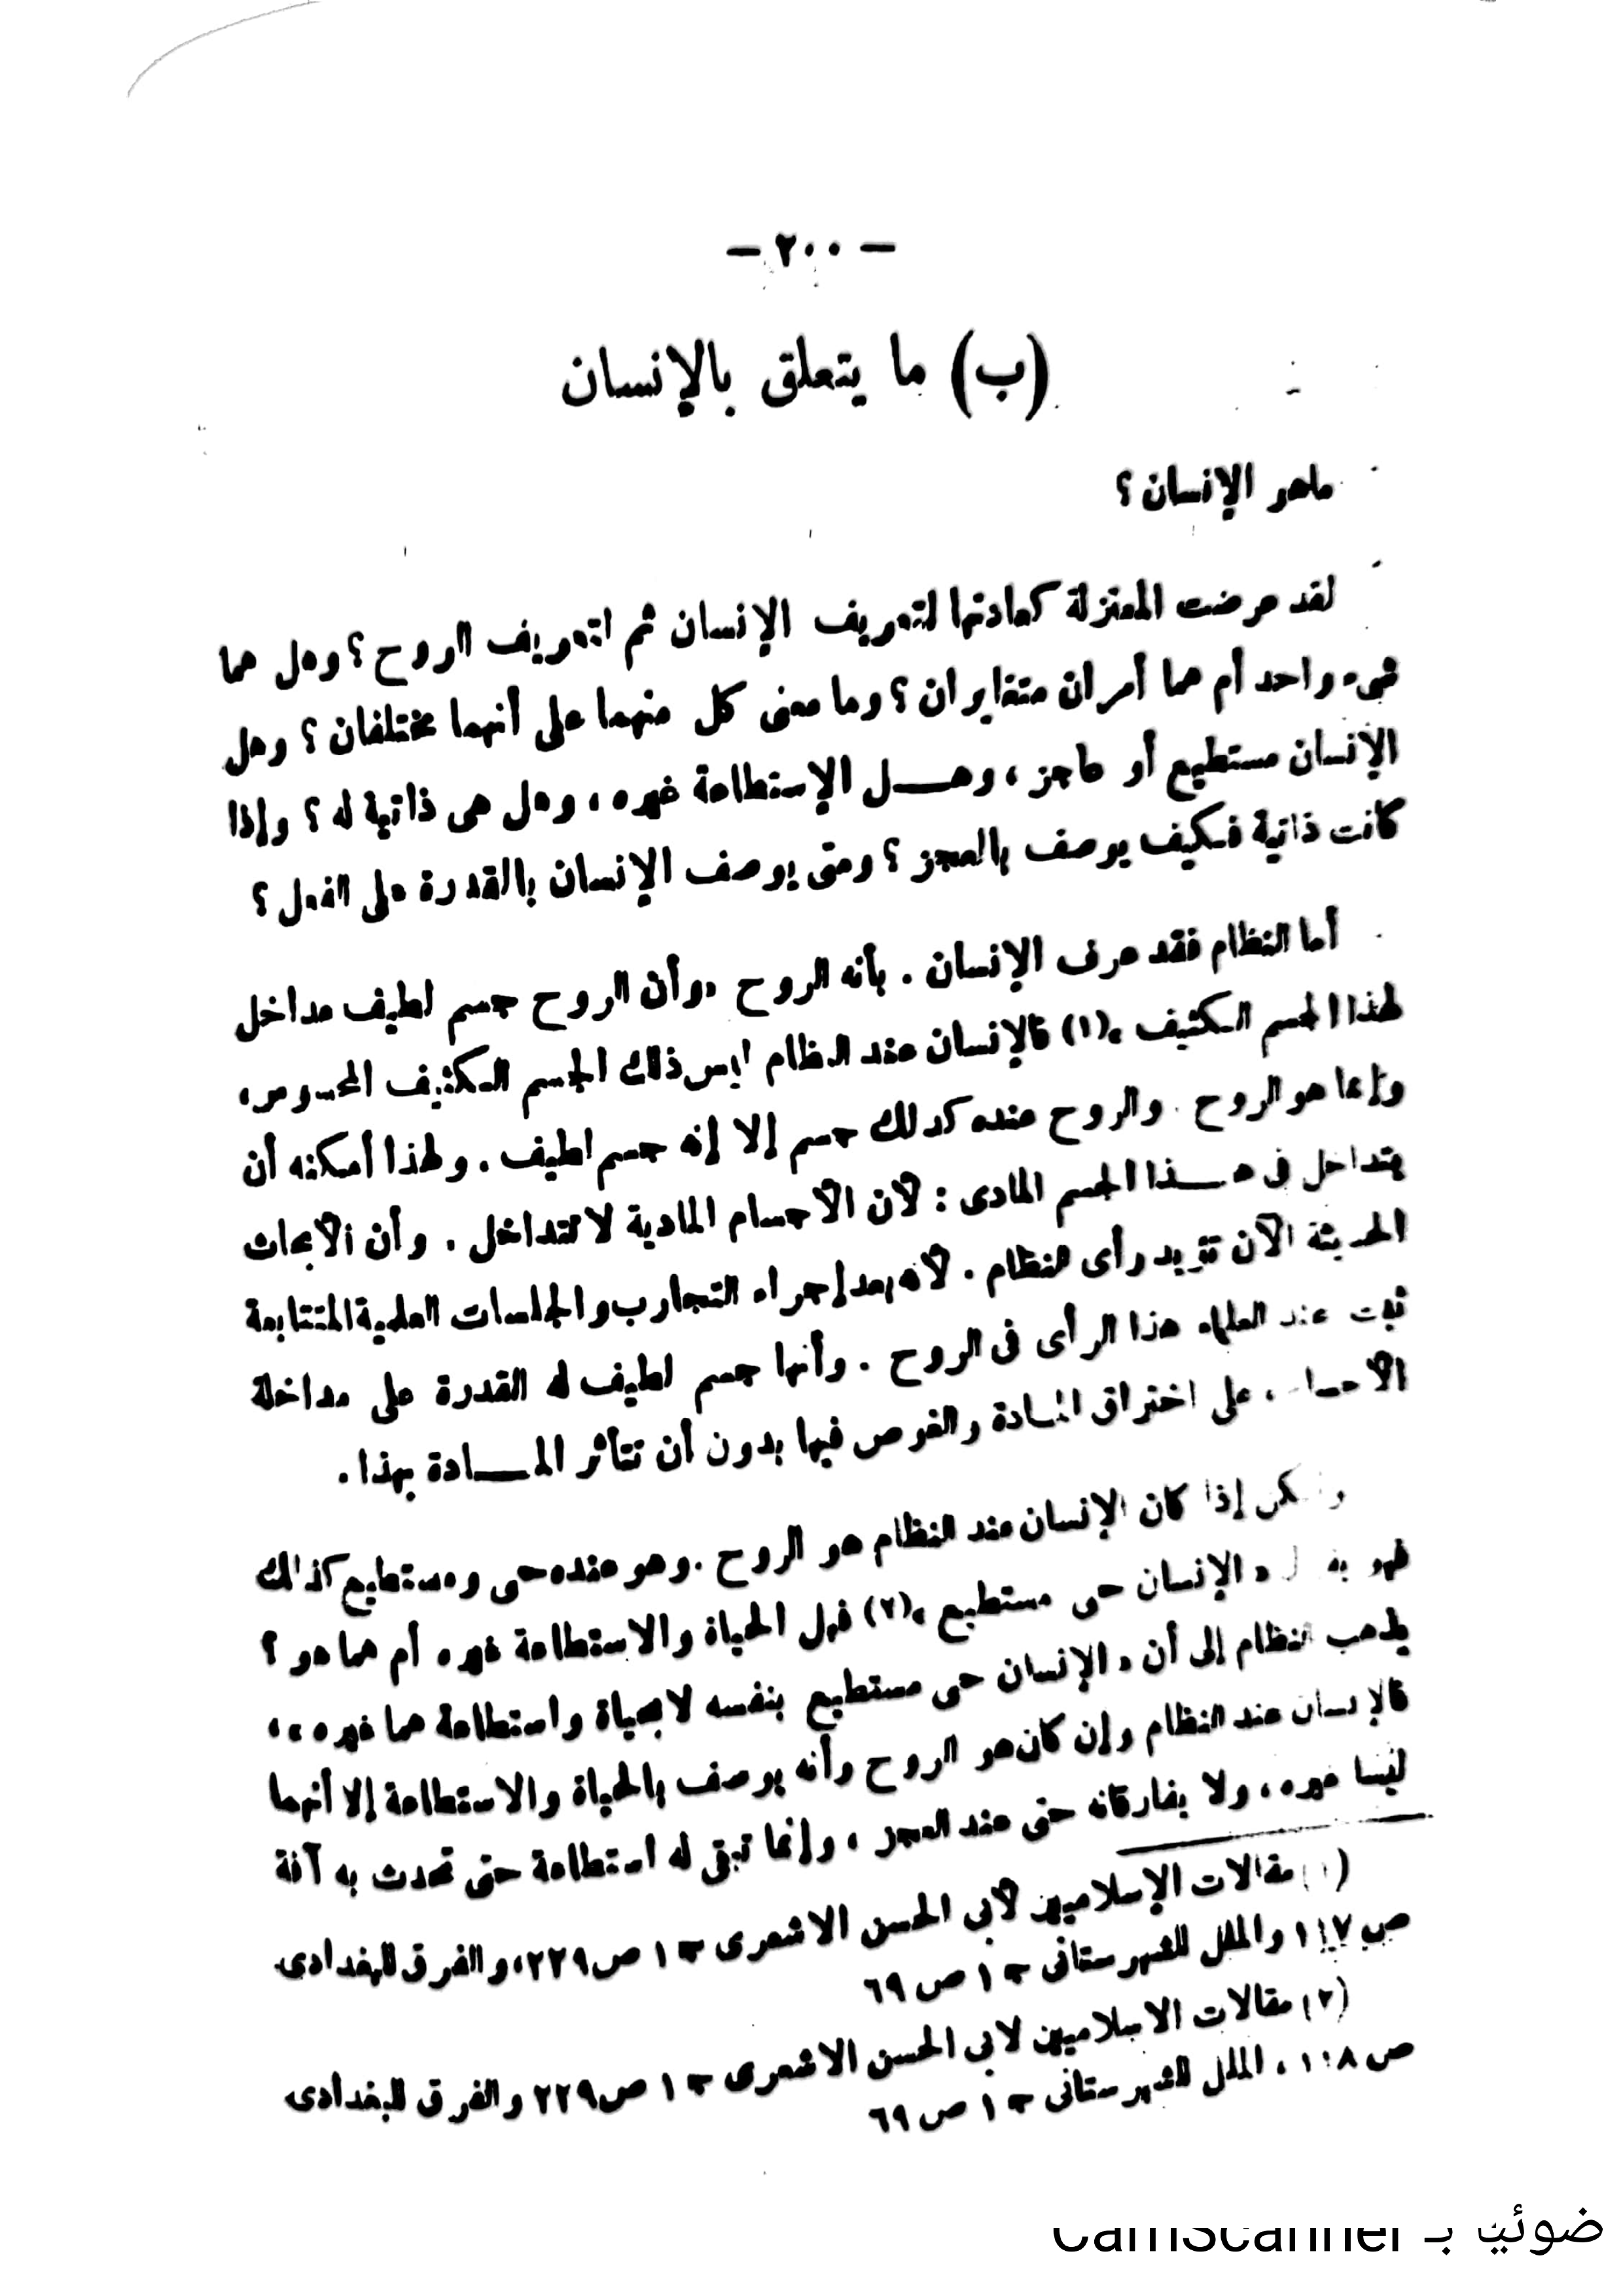 — ٢٠٠ —
(ب) ما يتعلق بالإنسان
ماهو الإنسان ؟
لقد عرضت المعتزلة كعادتها لتعريف الإنسان ثم لتعريف الروح ؟ وهل هما
شىء واحد أم هما أمران متغايران ؟ وما معنى كل منهما على أنهما مختلفان ؟ وهل
الإنسان مستطيع أو عاجز ، وهـــل الإستطاعة غيره ، وهل هى ذاتية له ؟ وإذا
كانت ذاتية فكيف يوصف بالعجز ؟ ومتى يوصف الإنسان بالقدرة على الفعل ؟
أما النظام فقد عرف الإنسان . بأنه الروح « وأن الروح جسم لطيف مداخل
لهذا الجسم الكثيف » (١) فالإنسان عند النظام ليس ذلك الجسم الكثيف المحسوس ،
وإنما هو الروح . والروح عنده كذلك جسم إلا إنه جسم لطيف . ولهذا أمكنه أن
يتداخل فى هـــذا الجسم المادى : لأن الأجسام المادية لا تتداخل . وأن الأبحاث
الحديثة الآن تؤيد رأى النظام . لأنه بعد إجراء التجارب والجلسات العلمية المتتابعة
ثبت عند العلماء هذا الرأى فى الروح . وأنها جسم لطيف له القدرة على مداخلة
الأجسام ، على اختراق المادة والغوص فيها بدون أن تتأثر المـــادة بهذا .
ولكن إذا كان الإنسان عند النظام هو الروح . وهو عنده حى ومستطيع كذلك
فهو يقول « الإنسان حى مستطيع » (٢) فهل الحياة والاستطاعة غيره أم هما هو ؟
يذهب النظام إلى أن « الإنسان حى مستطيع بنفسه لا بحياة واستطاعة هما غيره » ،
فالإنسان عند النظام وإن كان هو الروح وأنه يوصف بالحياة والاستطاعة إلا أنهما
ليسا غيره ، ولا يفارقانه حتى عند العجز ، وإنما تبقى له استطاعة حتى تحدث به آفة
(١) مقالات الإسلاميين لأبى الحسن الاشعرى ج ١ ص ٢٢٩ ، والفرق للبغدادى
ص ١١٧ والملل للشهرستانى ج ١ ص ٦٩
(٢) مقالات الاسلاميين لابى الحسن الاشعرى ج ١ ص ٢٢٩ والفرق للبغدادى
ص ، الملل للشهرستانى ج ١ ص ٦٩
ضوئيا بـ CamScanner